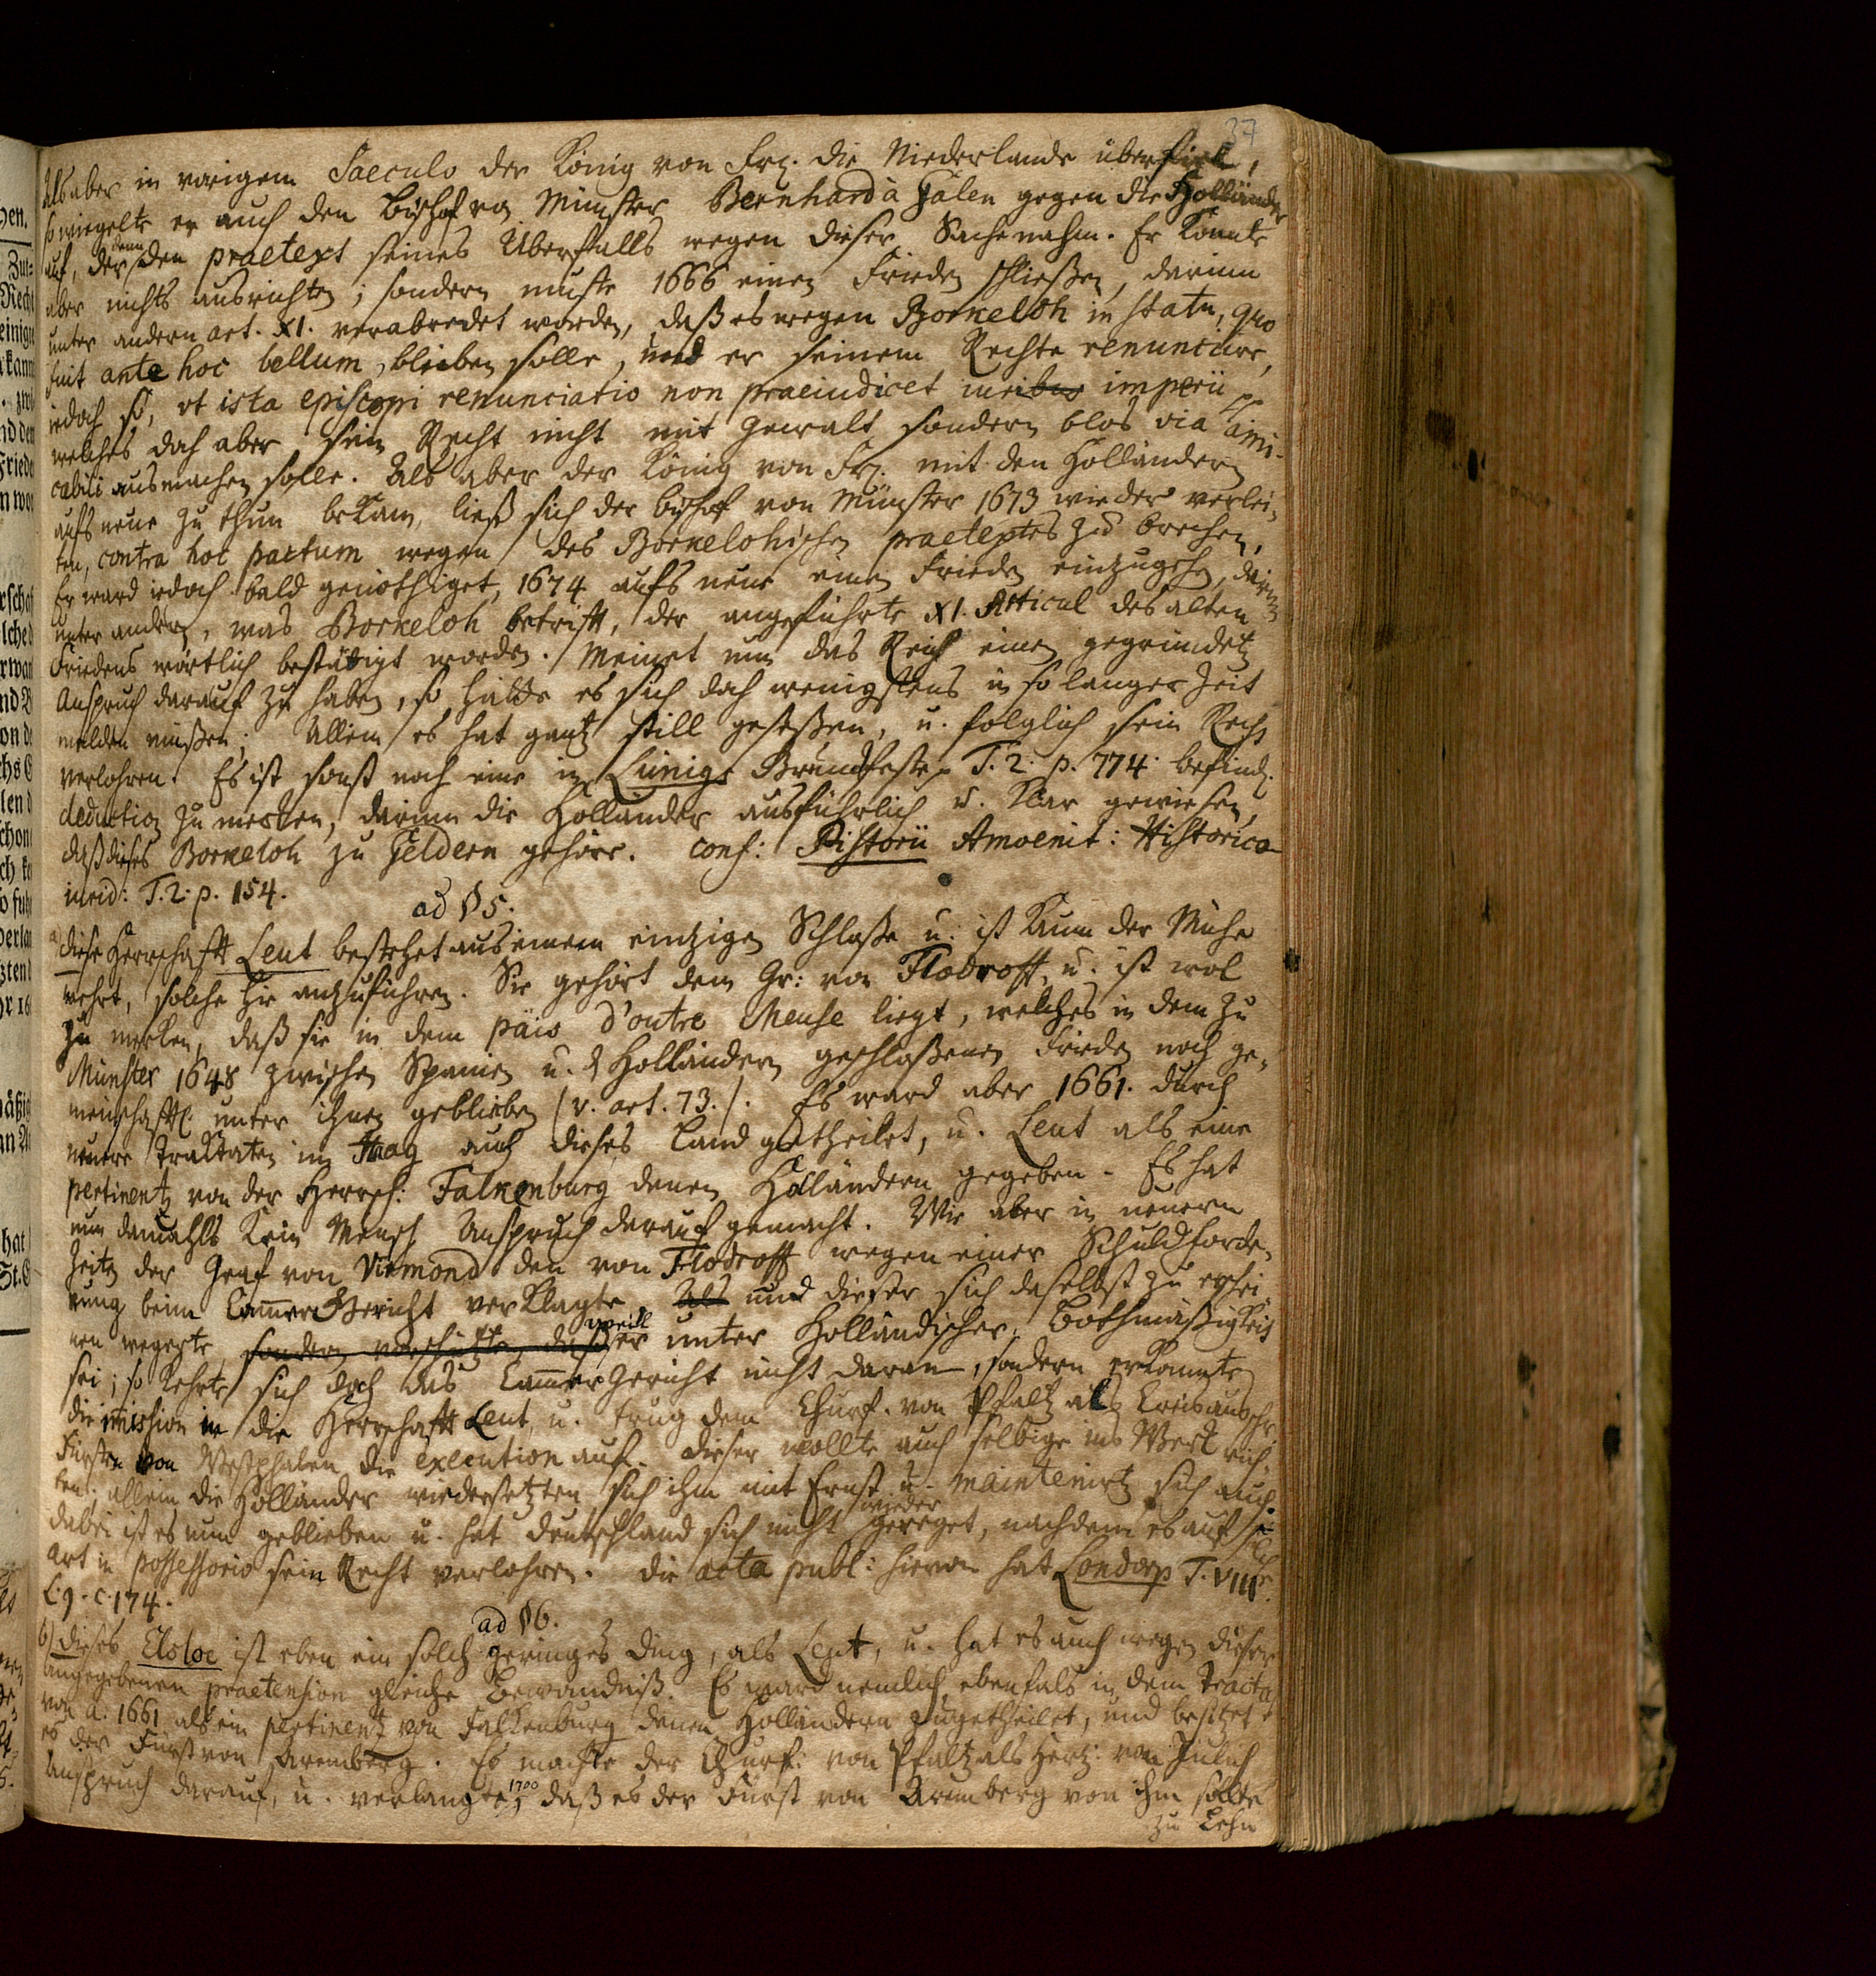 37
Als aber in vorigem Saeculo der König von Frz. die Niederlande überfiel,
so wiegelte er auch den Bischof von Münster Bernhard à Galen gegen die Holländer
auf, der denn den praetext seines Überfalls wegen dieser Sache nahm. Er konnte
aber nichts ausrichten; sondern muste 1666 einen Frieden schließen, darinn
unter andern art. XI. verabredet worden, daß es wegen Borkeloh in statu, quo
fuit ante hoc bellum, blieben solle, und er seinem Rechte renuncire,
iedoch so, ut ista episcopi renunciatio non praeiudicet iuribus imperii,
welches doch aber sein Recht nicht mit Gewalt sondern blos via ami-
cabili ausmachen solle. Als aber der König von Frz. mit den Holländern
aufs neue zu thun bekam, ließ sich der Bischof von Münster 1673 wieder verlei-
ten, contra hoc pactum wegen des Borkelohischen praetextes zu brechen,
Er ward iedoch bald genöthiget, 1674 aufs neue einen Frieden einzugehen, darinn
unter andern, was Borkeloh betrifft, der angeführte XI. Articul des alten
Friedens wörtlich bestätigt worden. Meinet nun das Reich einen gegründeten
Anspruch darauf zu haben, so hätte es sich doch wenigstens in so langer Zeit
melden müßen; Allein es hat gantz still geseßen, u. folglich sein Recht
verlohren. Es ist sonst noch eine in Lünigs Grundfeste T. 2. p. 774. befindl.
deduction zu merken, darinn die Holländer ausführlich u. klar gewiesen,
daß dieses Borkeloh zu Geldern gehöre. conf: Pistorii Amoenit: Historico
iurid: T. 2. p. 154.
ad § 5.
a) diese Herrschafft Leut bestehet aus einem eintzigen Schloße u. ist kaum der Mühe
wehrt, solche hie anzuführen. Sie gehört dem Gr: von Flodroff, u. ist wol
zu merken, daß sie in dem païs d'outre Meuse liegt, welches in dem zu
Münster 1648 zwischen Spanien u. d Holländern geschloßenen Frieden noch ge-
meinschafftl. unter ihnen geblieben (v. art. 73.). Es ward aber 1661. durch
neuere Tractaten im Haag auch dieses Land getheilet, u. Leut als eine
pertinentz von der Herrsch: Falkenburg denen Holländern gegeben. Es hat
nun damahls kein Mensch Anspruch darauf gemacht. Wie aber in neuern
Zeiten der Graf von Virmond den von Flodroff wegen einer Schuldforde-
rung beim Cammer Gericht verklagte, Als und dieser sich daselbst zu erschei-
nen wegerte, sondern vorschützte, daß weill er unter Holländischer Bothmäßigkeit
sei; so kehrte sich doch das Cammer Gericht nicht daran, sondern erkannte
die immission in die Herrschafft Leut, u. trug dem Churf. von Pfaltz als Creisausschr.
Fürsten von Westphalen die execution auf. Dieser wollte auch selbige ins Werk rich-
ten: allein die Holländer wiedersetzten sich ihm mit Ernst u. maintenirten sich auch.
dabei ist es nun geblieben u. hat Deutschland sich nicht wieder gereget, nachdem es auf solche
Art in possessorio sein Recht verlohren. Die acta publ: hievon hat Londorp T. VIII.
L. 9. c. 174.
ad § 6.
b) dieses Elsloe ist eben ein solch geringes Ding, als Leut, u. hat es auch wegen dieser
angegebenen praetension gleiche Bewandniß. Es ward nemlich ebenfals in dem Tractat
von a. 1661 als ein pertinentz von Falkenburg denen Holländern zugetheilet, und besitzet
es der Fürst von Aremberg. Es machte der Churf: von Pfaltz als Hertz: von Jülich
Anspruch darauf, u. verlangte 1700, daß es der Fürst von Aremberg von ihm sollte
zu Lehn